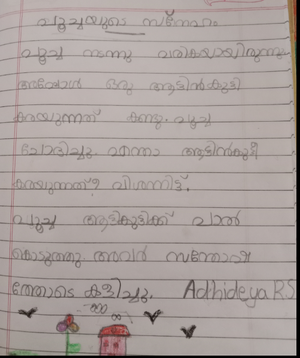 പൂച്ചയുടെ സ്നേഹം
പൂച്ച നടന്നു വരികയായിരുന്നു
അപ്പോൾ ഒരു ആട്ടിൻകുട്ടി
കരയുന്നത് കണ്ടു. പൂച്ച
ചോദിച്ചു എന്താ ആട്ടിൻകുട്ടീ
കരയുന്നത്? വിശന്നിട്ട്.
പൂച്ച ആട്ടികുട്ടിക്ക് പാൽ
കൊടുത്തു അവർ സന്തോഷ
ത്തോടെ കളിച്ചു. Adhideya R S